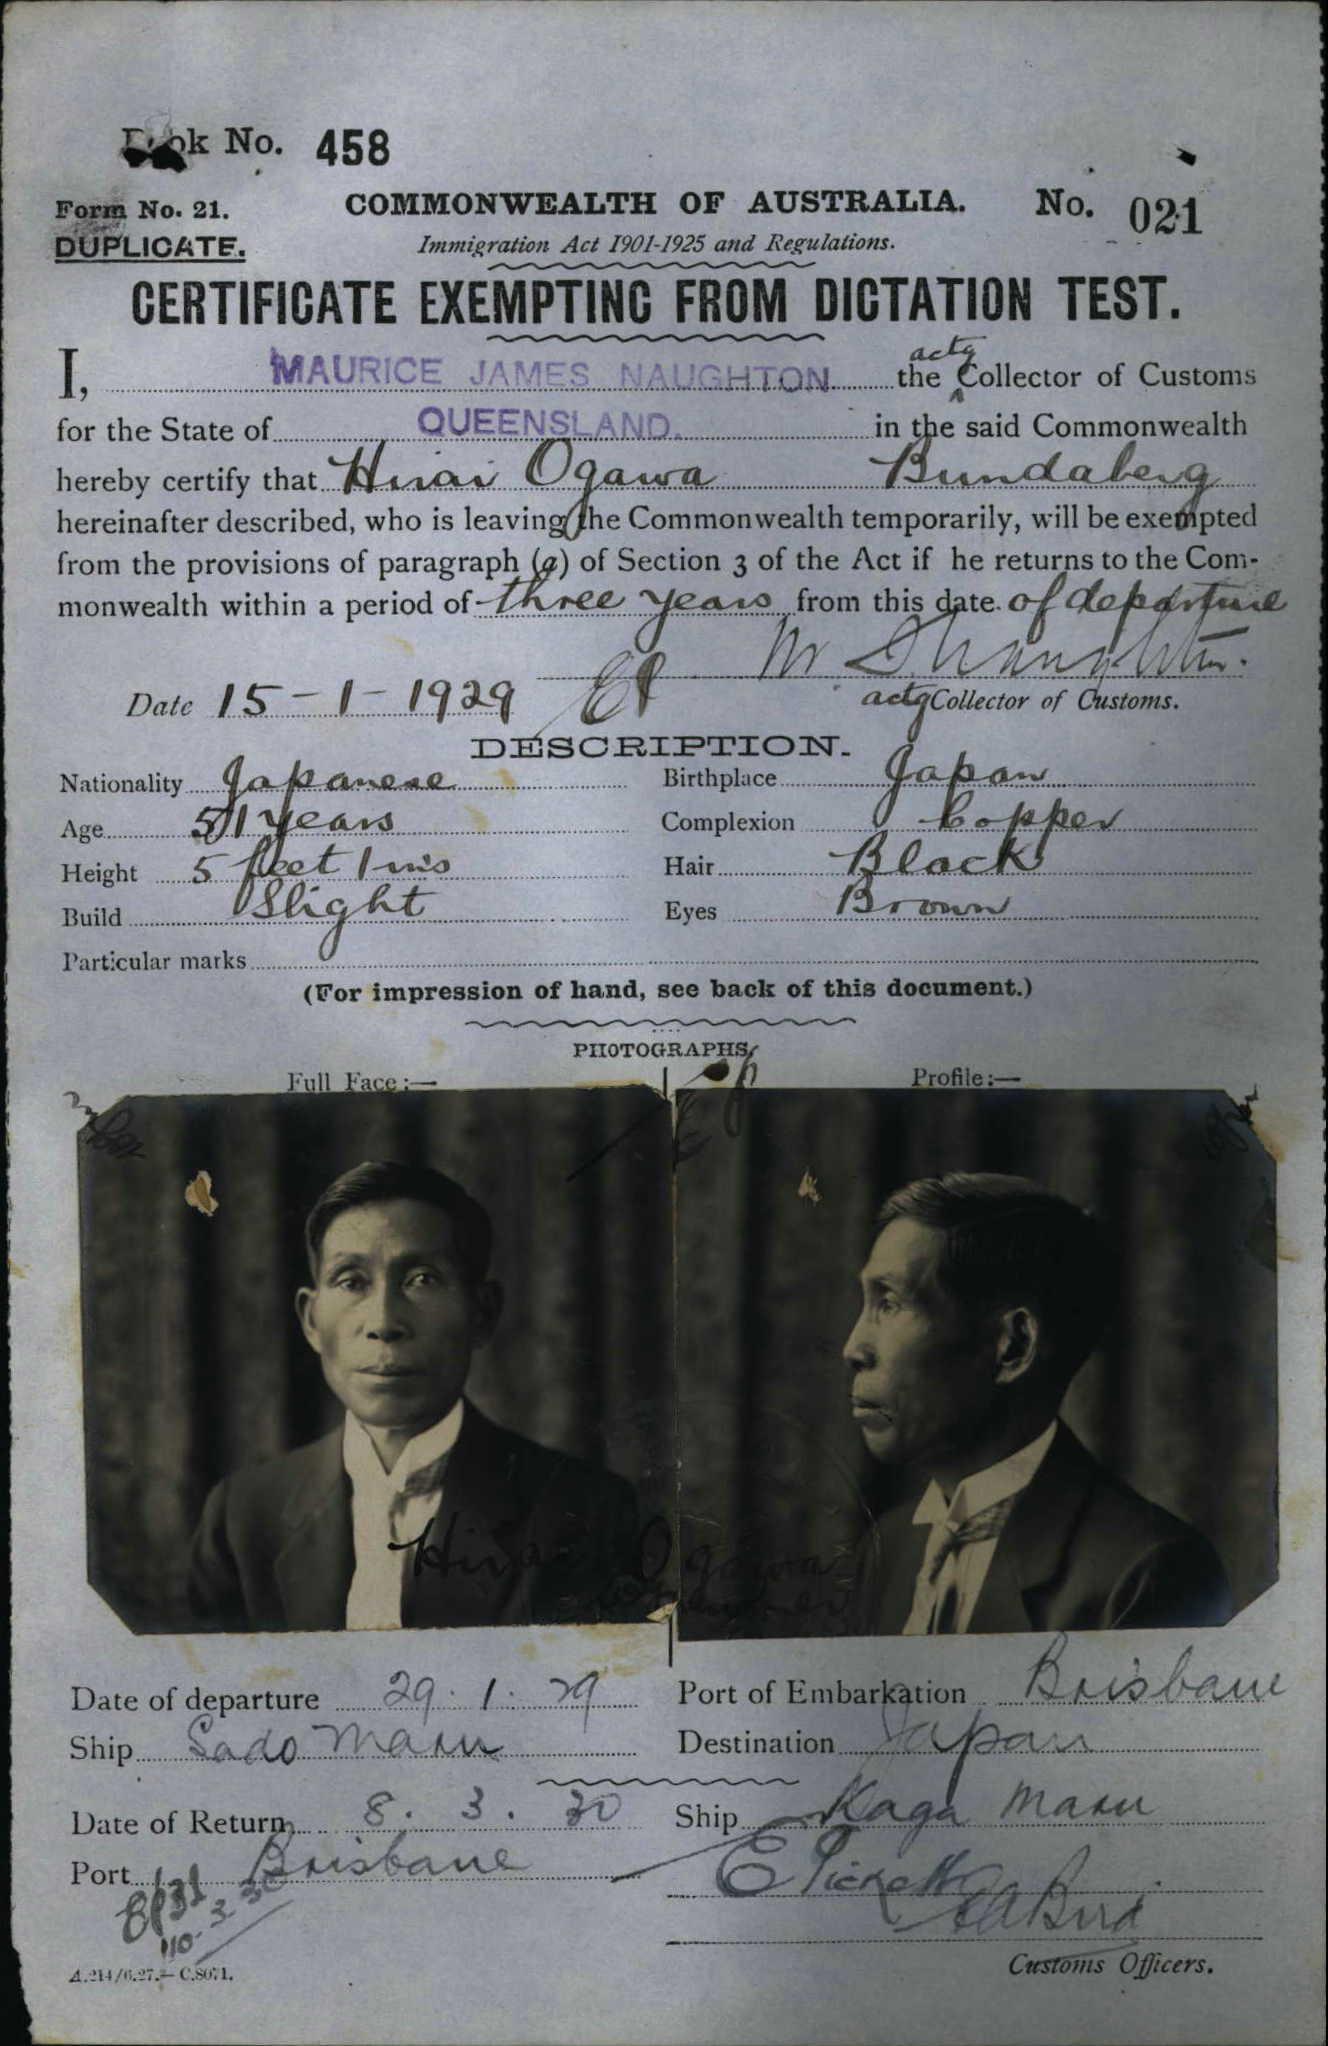 Book No. 458
Form No. 21.
COMMONWEALTH OF AUSTRALIA.
No. 021
DUPLICATE.
Immigration Act 1901-1925 and Regulations.
CERTIFICATE EXEMPTING FROM DICTATION TEST.
I, MAURICE JAMES NAUGHTON the actg Collector of Customs
for the State of QUEENSLAND. in the said Commonwealth
hereby certify that Hirai Ogawa Bundaberg
hereinafter described, who is leaving the Commonwealth temporarily, will be exempted
from the provisions of paragraph (a) of Section 3 of the Act if he returns to the Com-
monwealth within a period of three years from this date of departure
M J Naughton.
Date 15-1-1929 EP actg Collector of Customs.
DESCRIPTION.
Nationality Japanese Birthplace Japan
Age 51 years Complexion Copper
Height 5 feet 1 ins Hair Black
Build Slight Eyes Brown
Particular marks
(For impression of hand, see back of this document.)
PHOTOGRAPHS
Full Face:— Profile:—
Hirai Ogawa
Date of departure 29.1.29 Port of Embarkation Brisbane
Ship Sado Maru Destination Japan
Date of Return 8.3.30 Ship Kaga Maru
Port Brisbane E Pickett
A Bird
10.3.30
A.214/6.27.—C.8071.
Customs Officers.